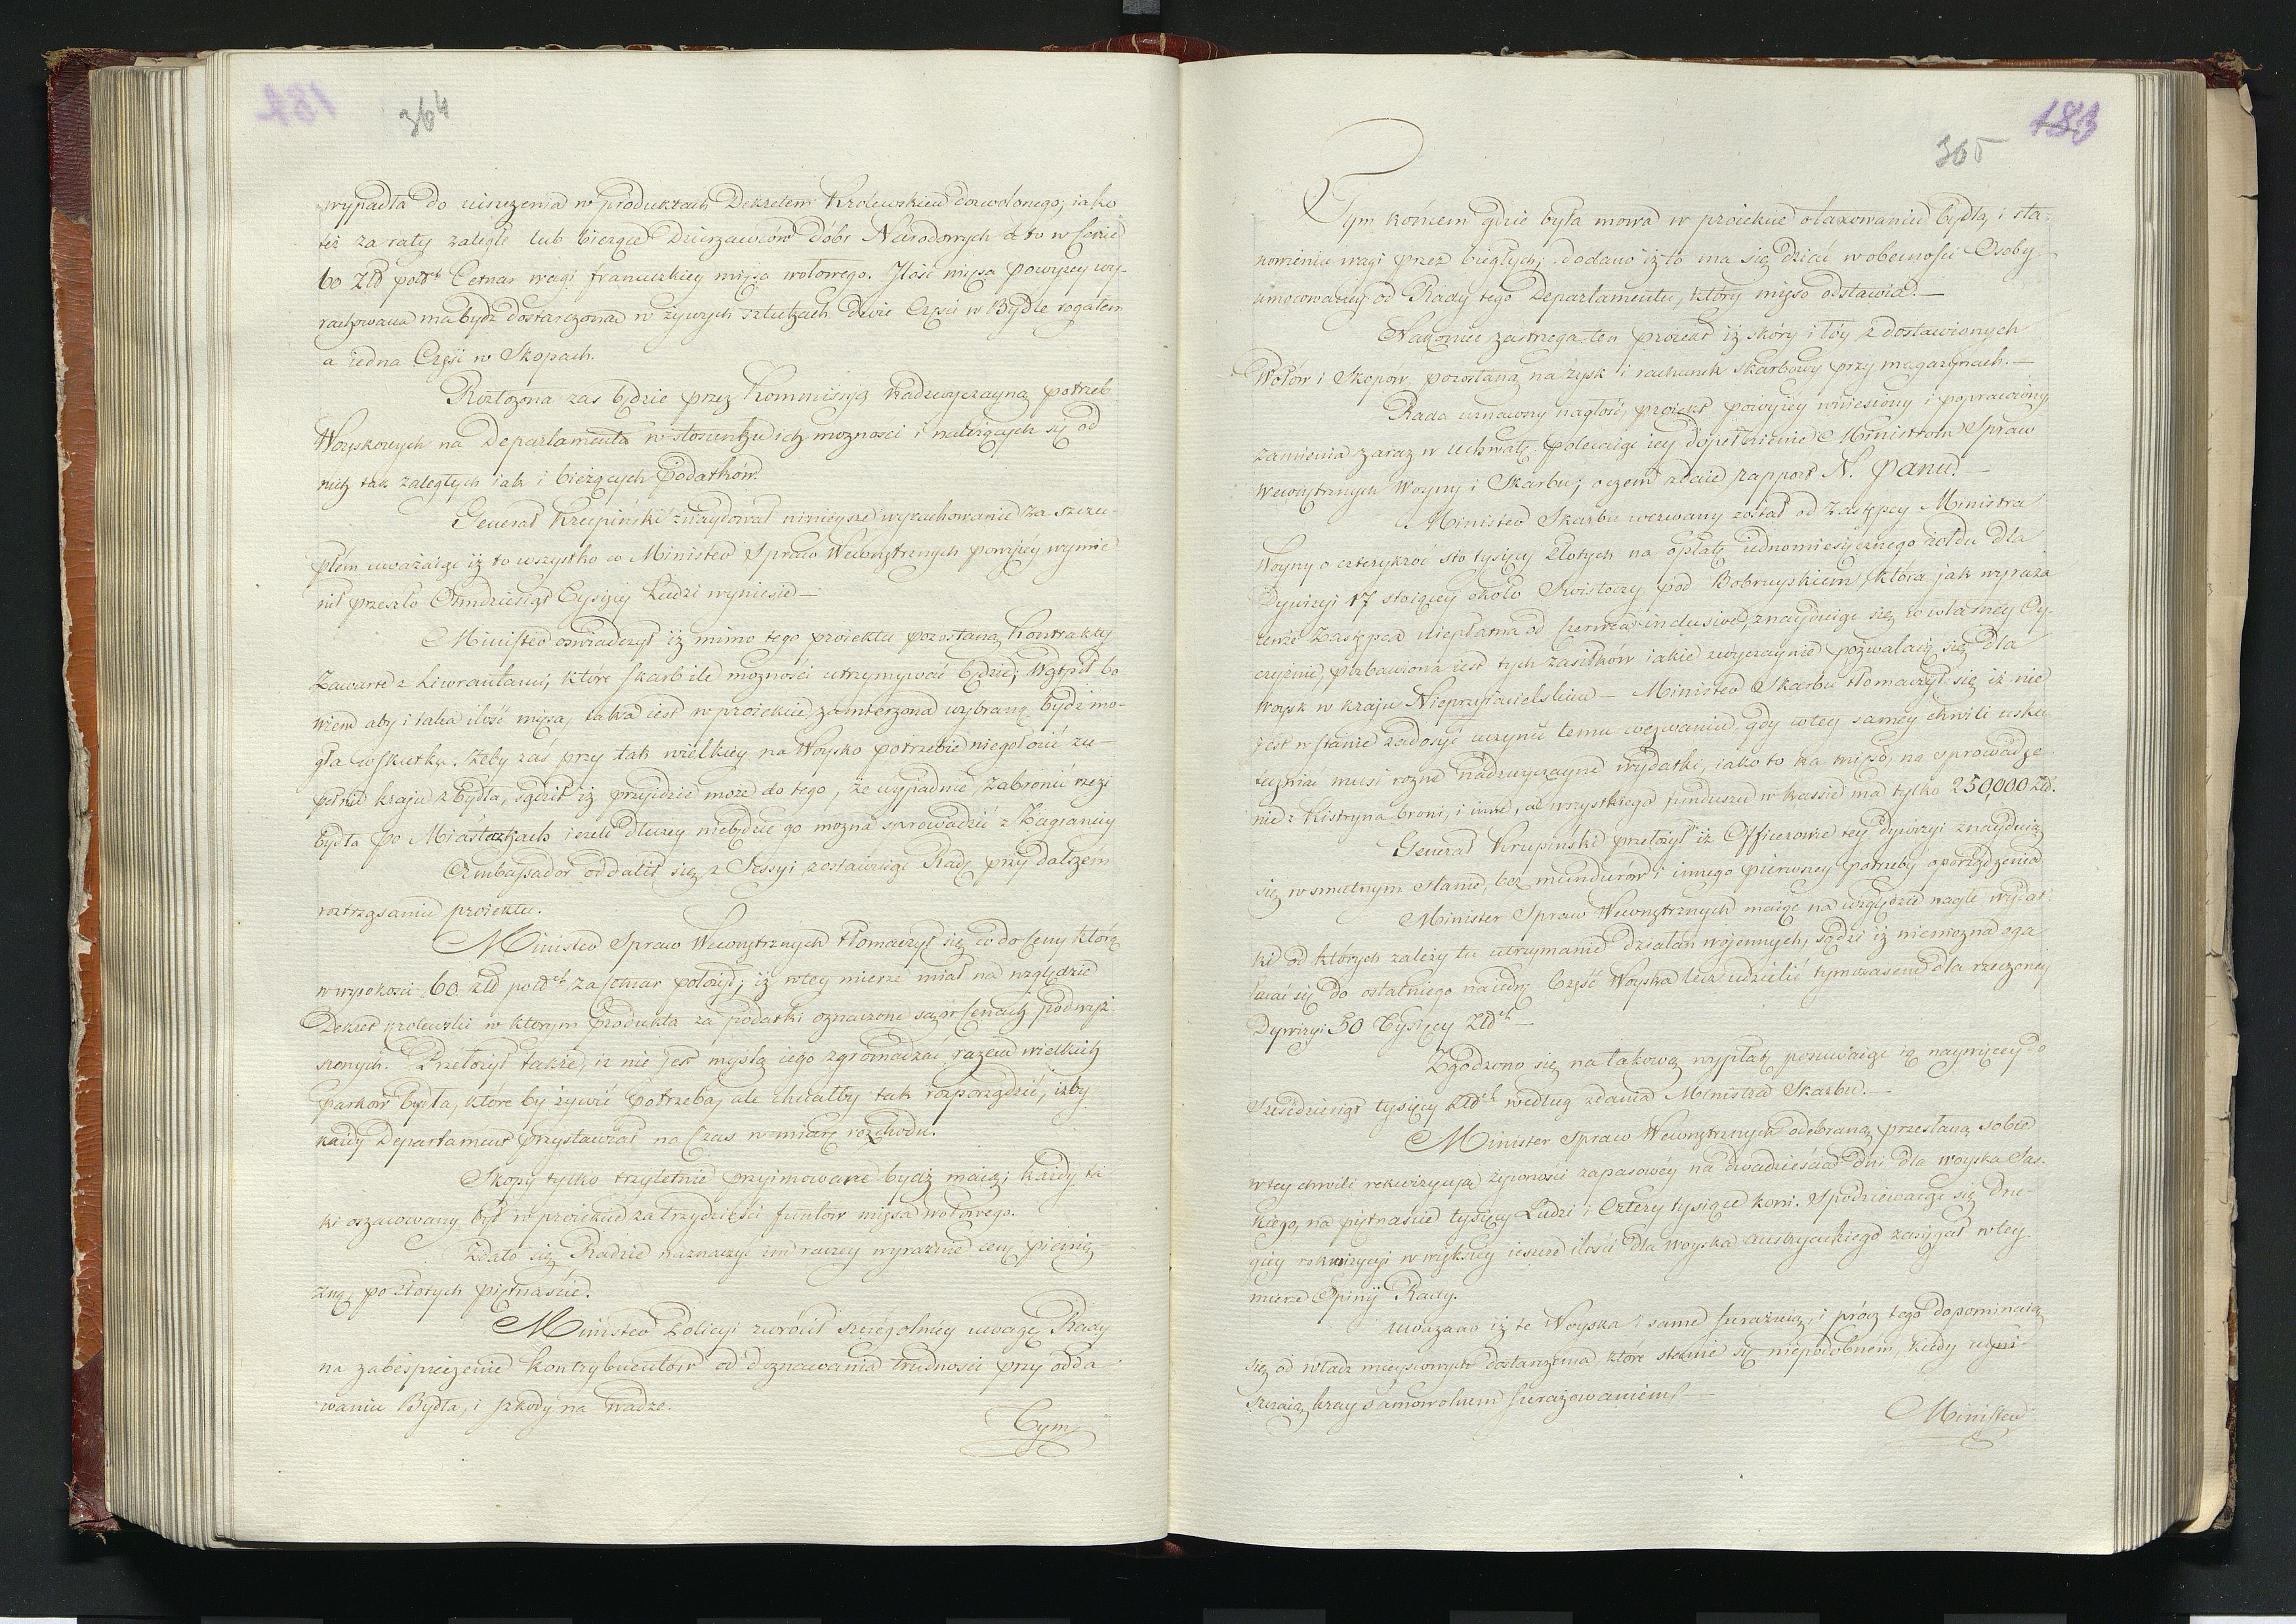 364
wypadła do uiszczenia w produktach Dekretem Królewskim dozwolonego; iako
też za raty zaległe lub bieżące Dzierzawców dóbr Narodowych a to w Cenie
60 Złł pol. Cetnar wagi francuzkiey mięsa wołowego. Ilość mięsa powyżey wy-
rachowana ma bydź dostarczona w żywych sztukach dwie Części w Bydle rogatem
a iedna Część w Skopach.
Rozłożona zas będzie przez Kommissyą Nadzwyczayną potrzeb
Woyskowych na Departamenta w stosunku ich możności i należących się od
nich tak zaległych iak i bieżących podatków.
Generał Krupiński znaydował ninieysze wyrachowanie za szczu-
płém uważaiąc iż to wszystko co Minister Spraw Wewnętrznych powyżéy wymie
nił przeszło Ośmdziesiąt Tysięcy Ludzi wyniesie —
Minister oświadczył iż mimo tego proiektu pozostaną Kontrakty
Zawarte z Liwerantami, które Skarb ile możności utrzymywać będzie; Wątpił bo
wiem aby i taka ilość mięsa, iaka iest w proiekcie zamierzona wybraną bydź mo-
gła w skutku. Żeby zaś przy tak wielkiey na Woysko potrzebie nieogołocić zu-
pełnie kraju z bydła, sądził iż przyidzie może do tego, że wypadnie zabronić rzezi
bydła po Miasteczkach ieżeli dłużey niebędzie go można sprowadzić z Zagranicy
Ambassador oddalił się z Sessyi zostawuiąc Radę przy dalszém
roztrząsaniu proiektu.
Minister Spraw Wewnętrznych tłomaczył się co do Ceny którą
w wysokości 60 złł pol. za Cetnar położył; iż w tey mierze miał na względzie
Dekret Królewski w którym produkta za podatki oznaczone są w Cenach podwyż
szonych. Przełożył także, iż nie jest myślą iego zgromadzać razem wielkich
parków bydła, które by żywić potrzeba, ale chciałby tak rozporządzić, iżby
każdy Departament przystawiał na Czas w miarę rozchodu.
Skopy tylko trzyletnie przyimowane bydź maią; każdy ta
ki oszacowany był w proiekcie za trzydzieści funtów mięsa wołowego.
Zdało się Radzie naznaczyć im raczey wyraźnie cenę pienię-
żną, po złotych piętnaście.
Minister Policyi zwrócił szczególniéy uwagę Rady
na zabespieczenie kontrybuentów od doznawania trudności przy odda
waniu Bydła, i szkody na wadze.
Tym
183
365
Tym końcem gdzie była mowa w proiekcie otaxowaniu bydła, i sta-
nowieniu wagi przez biegłych; dodano iż to ma się dziać w obecności Osoby
umocowaney od Rady tego Departamentu, który mięso odstawia.—
Nakoniec zastrzega ten proiekt iż skóry i łóy z dostawionych
Wołów i Skopów pozostaną na zysk i rachunek Skarbowy przy magazynach.—
Rada uznawszy nagłość, proiekt powyżéy wniesiony i poprawiony
zamienia zaraz w uchwałę polecaiąc iey dopełnienie Ministrom Spraw
Wewnętrznych Woyny i Skarbu; o czem zdaie rapport N. Panu.—
Minister Skarbu wezwany został od Zastępcy Ministra
Woyny o czterykroć sto tysięcy Złotych na opłatę iednomiesięcznego żołdu dla
Dywizyi 17 stoiącey około Swisłoczy pod Bobruyskiem, która jak wyraża
tenże Zastępca niepłatna od Czerwca inclusive, znayduiąc się w własney Oy-
czyznie, pozbawiona iest tych zasiłków iakie zwyczaynie pozwalaią się dla
Woysk w kraju Nieprzyiacielskim — Minister Skarbu tłomaczył się iż nie
jest w stanie zadosyć uczynić temu wezwaniu gdy w tey samey chwili usku
teczniać musi rożne nadzwyczayne wydatki, iako to na mięso, na sprowadze
nie z Kistryna broni, i inne, a wszystkiego funduszu w kassie ma tylko 250,000 Złł.
Generał Krupiński przełożył iż Officerowie tey dywizyi znayduią
się w smutnym stanie, bez mundurów i innego pierwszey potrzeby oporządzenia
Minister Spraw Wewnętrznych maiąc na względzie nagłe wydat
ki od których zależy tu utrzymanie działań wojennych, sądzi iż niemożna oga
łacać się do ostatniego na iednę Część Woyska lecz udzielić tymczasem dla rzeczoney
Dywizyi 50 Tysięcy Złł —
Zgodzono się na takową wypłatę posuwaiąc ią naywięcey do
Sześćdziesiąt tysięcy Złł według zdania Ministra Skarbu.—
Minister Spraw Wewnętrznych odebraną przesłaną sobie
w tey chwili rekwizycyą żywności zapasowéy na dwadzieścia dni dla woyska Sas-
kiego, na piętnaście tysięcy Ludzi i Cztery tysiące koni. Spodziewaiąc się dru-
giéy rekwizycyi w większey ieszcze ilości dla Woyska Austryackiego zasięgał w tey
mierze Opinii Rady.
Uważano iż te Woyska same furażuią, i prócz tego dopominaią
się od władz mieyscowych dostarczenia które staie się niepodobnem, kiedy
kray samowolnem furażowaniem —
Minister